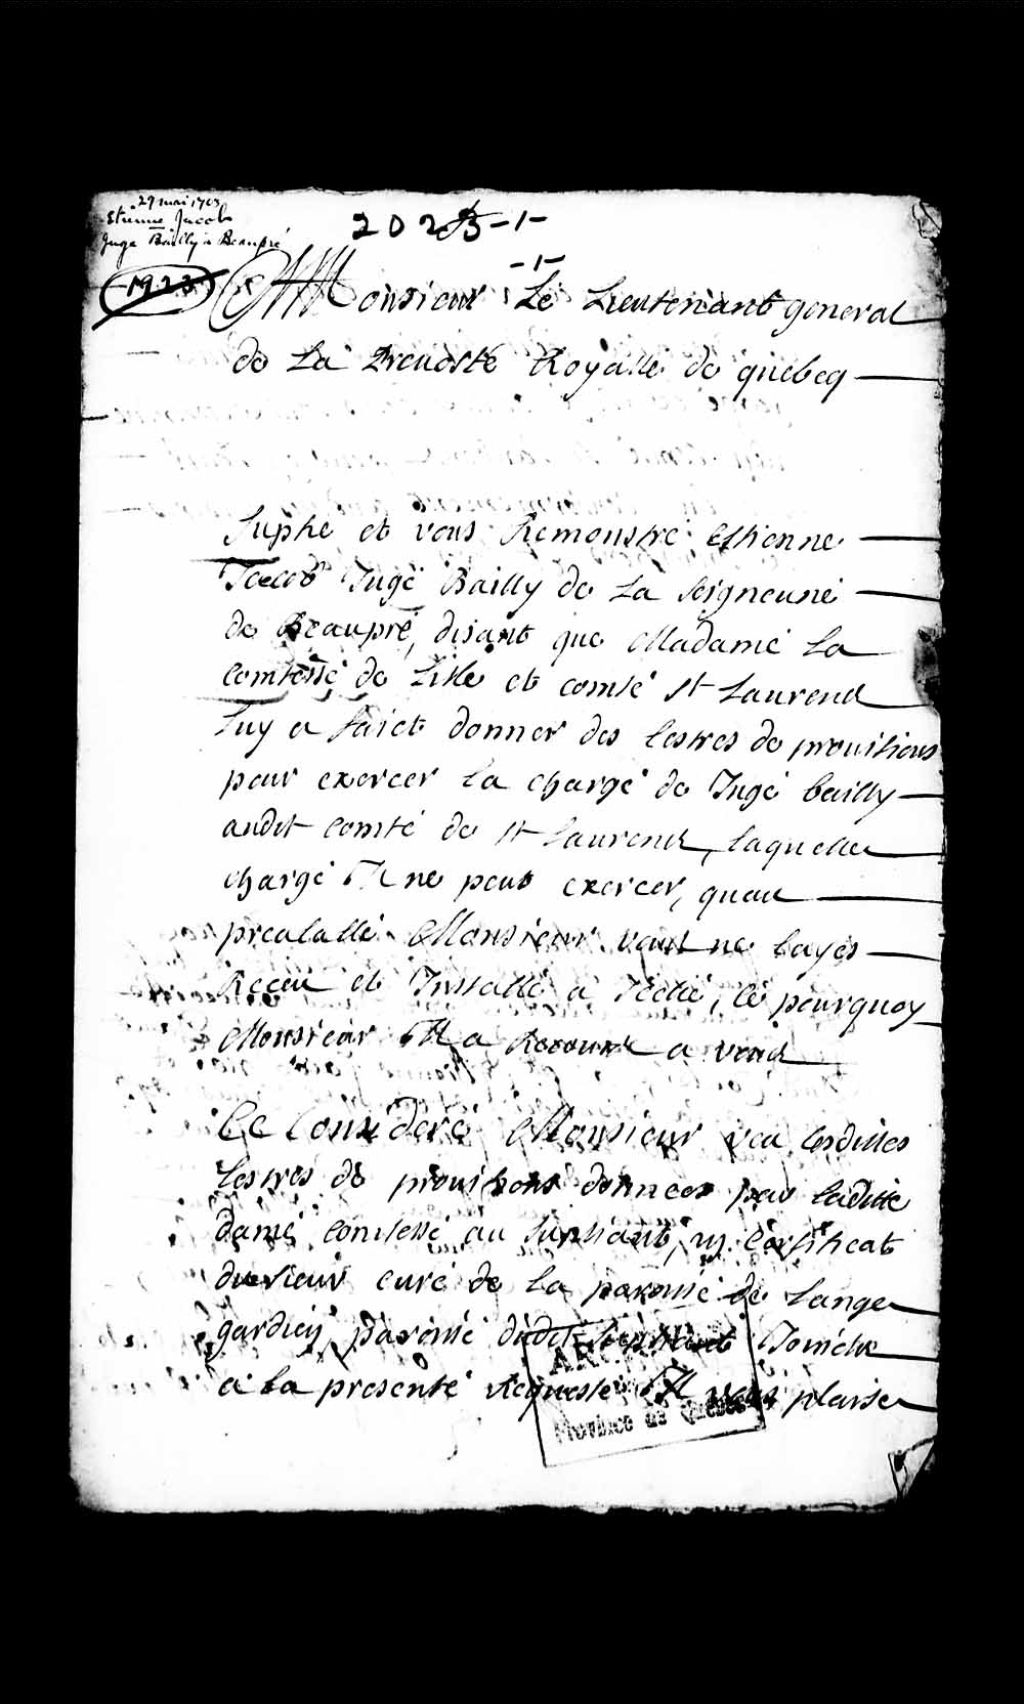 29 mai 1703
Etienne Jacob
Juge Bailly à Beaupré
2023-1-
-1-
1923
A Monsieur Le Lieutenant general
de La prevosté Royalle de quebecq
Suplie et vous Remonstre estienne
Jacob Juge Bailly de La seigneurie
de Beaupré, disant que Madame La
comtesse de L'isle et comté st Laurend
Luy a faict donner des lestres de provisions
pour exercer la charge de Juge bailly
audit comté de st Laurend, laquelle
charge Il ne peut exercer, quau
prealable Monsieur vous ne layes
Receu et Installé a Icelle, Ce pourquoy
Monsieur Il a Recours a vous
Ce Consideré Monsieur veu lesdittes
Lestres de provisions donnees par laditte
dame comtesse au supliant, un Certificat
du sieur curé de la paroisse de Lange
gardien paroisse dudit supliant Joincte
a la presente Requeste Il vous plaise
Province de Québec